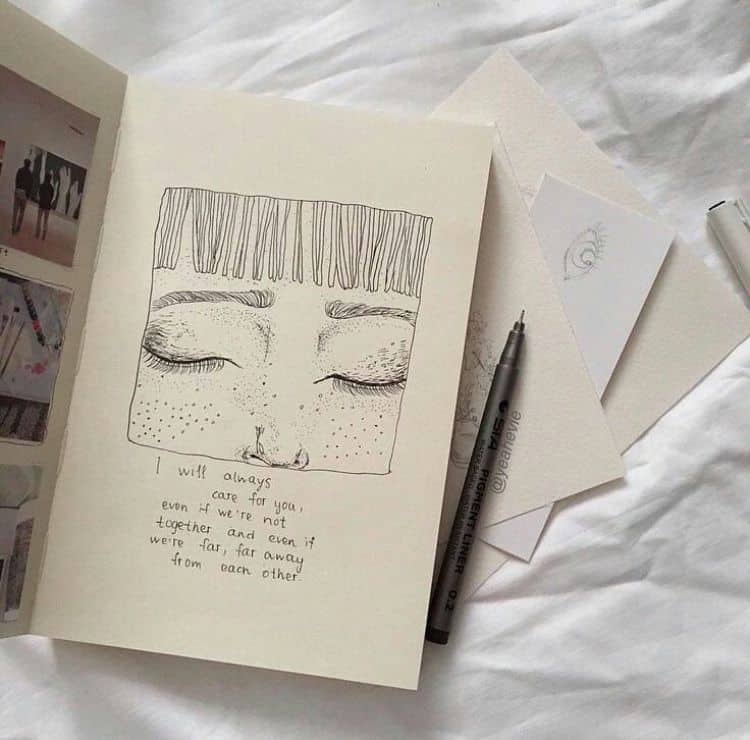 I will always
care for you,
even if we're not
together and even if
we're far, far away
from each other.
STA
PIGMENT LINER 0.2
@yeahevie